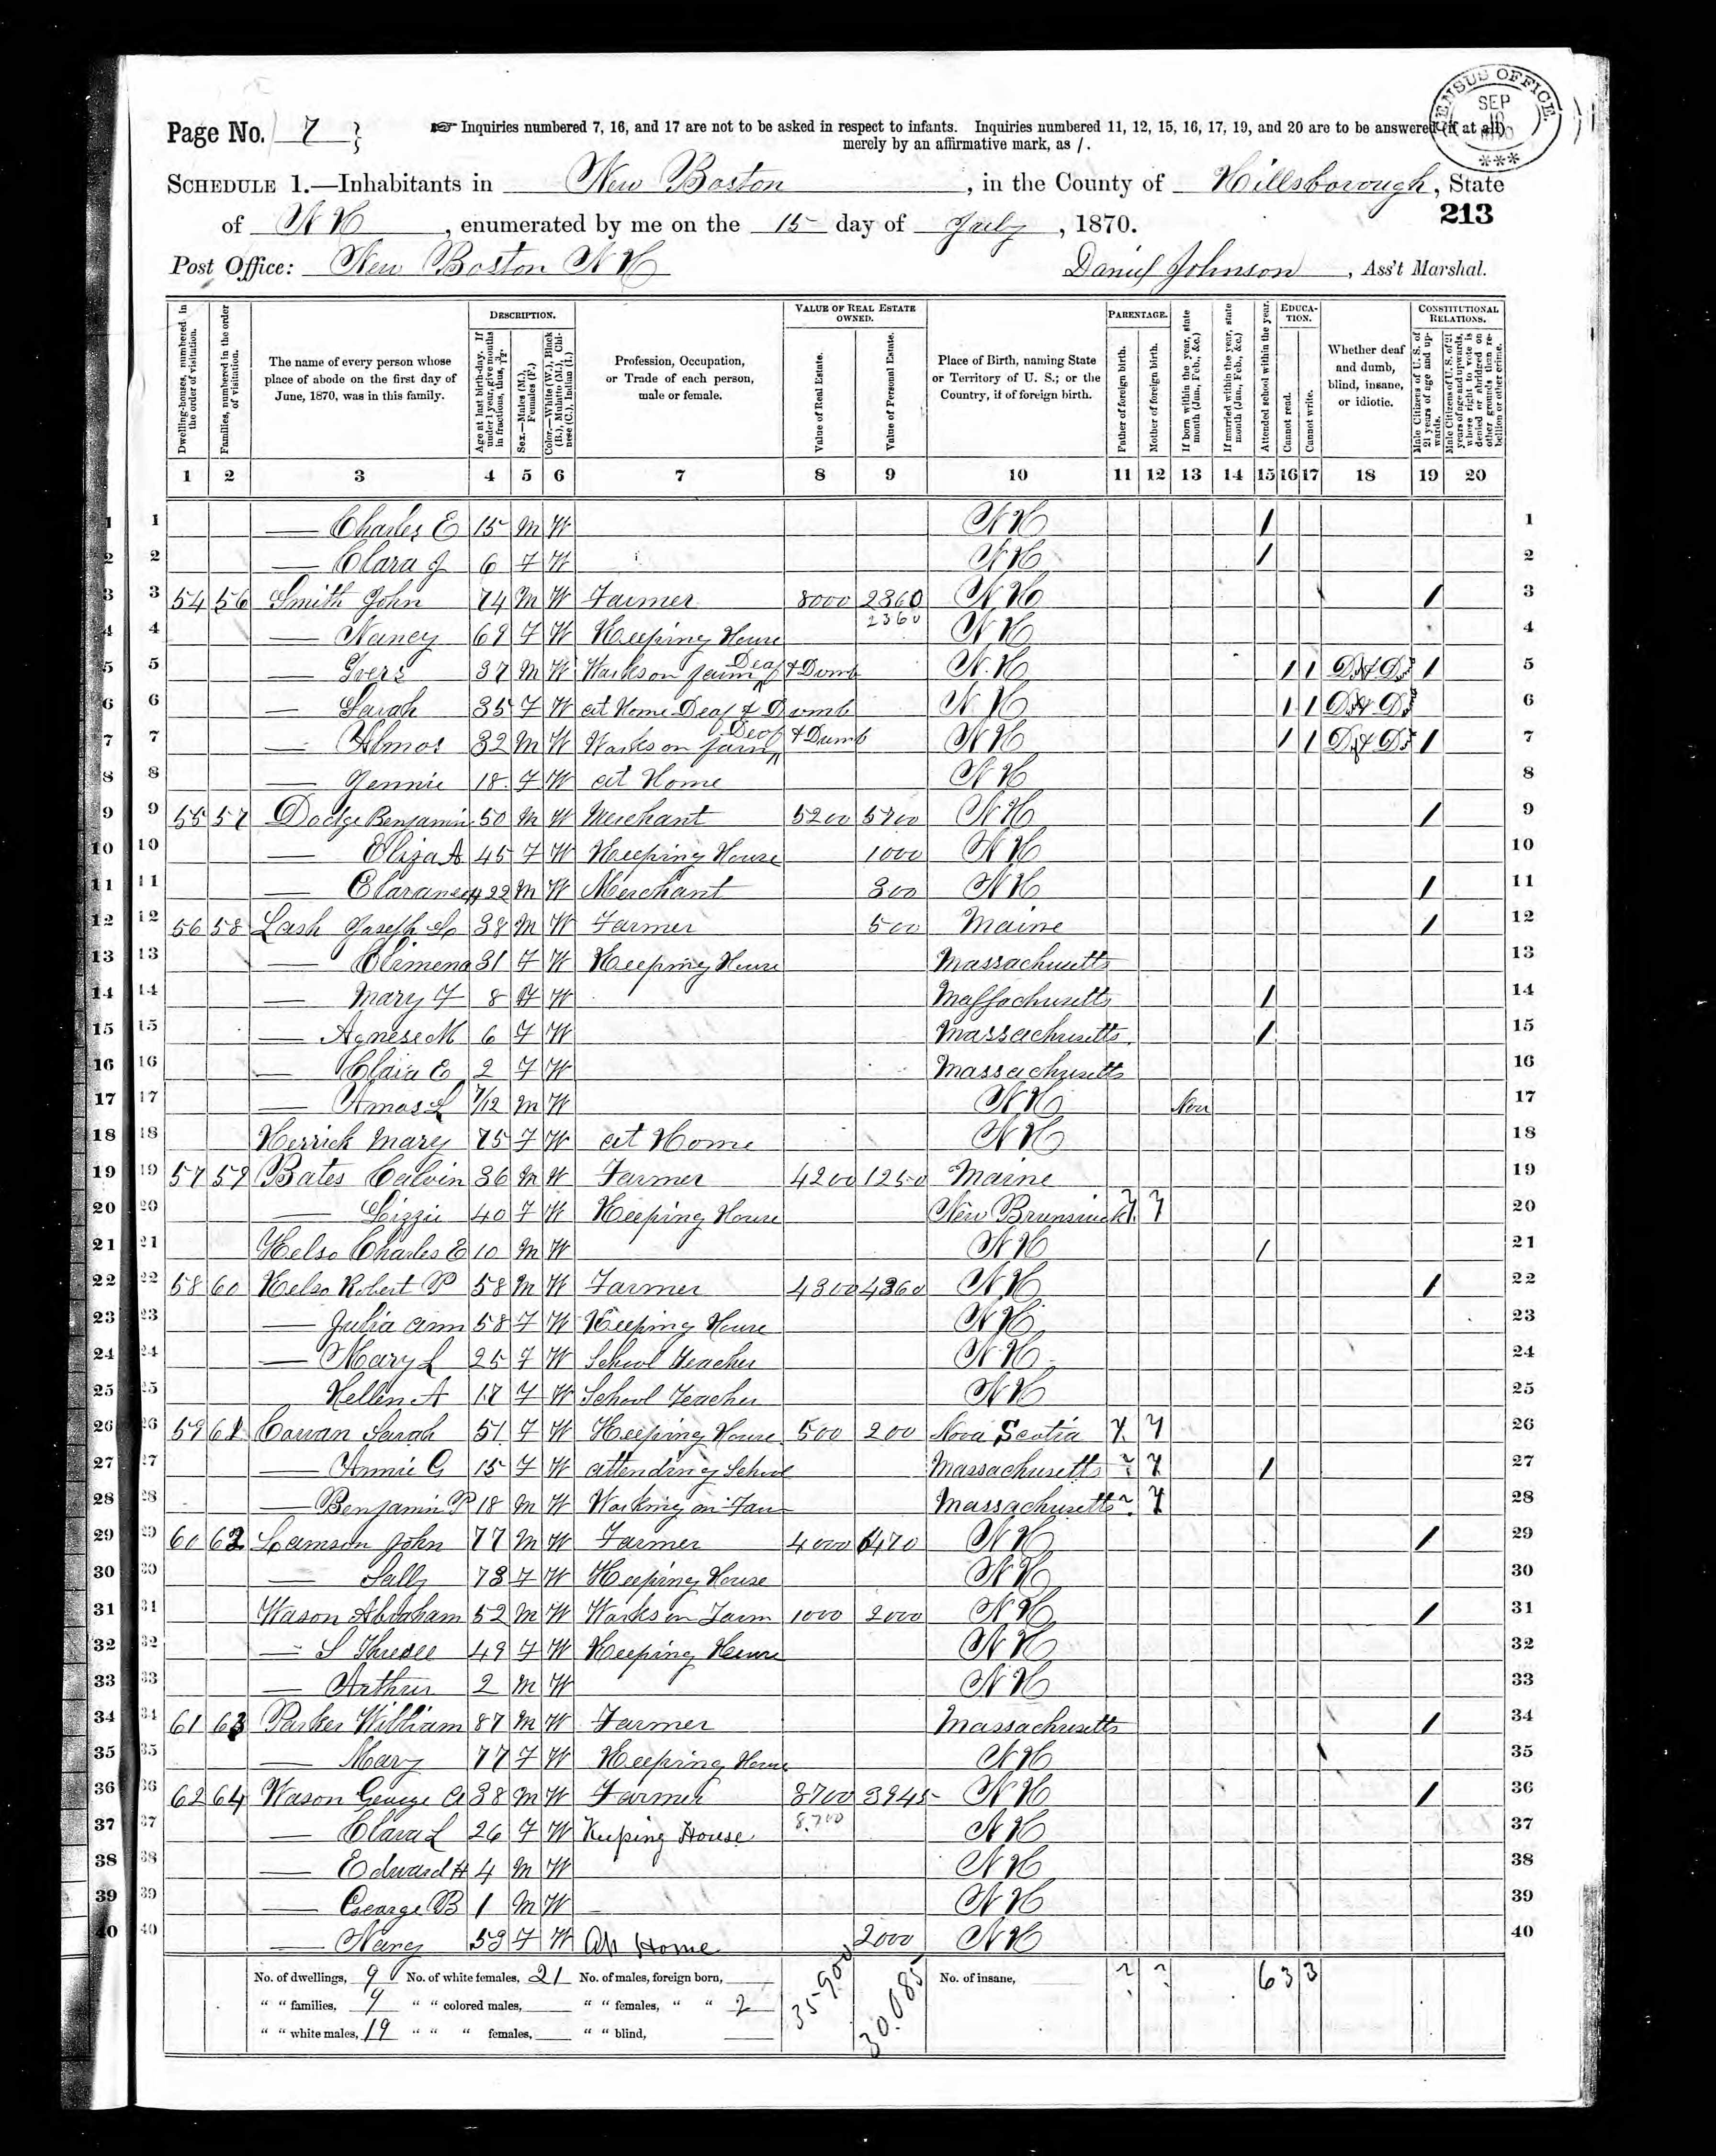 Page No. 7
☞ Inquiries numbered 7, 16, and 17 are not to be asked in respect to infants. Inquiries numbered 11, 12, 15, 16, 17, 19, and 20 are to be answered (if at all)
merely by an affirmative mark, as /.
CENSUS OFFICE. SEP
SCHEDULE 1.—Inhabitants in New Boston, in the County of Hillsborough, State
213
of N H, enumerated by me on the 15 day of July, 1870.
Post Office: New Boston N H Daniel Johnson, Ass't Marshal.
Dwelling-houses, numbered in the order of visitation.
Families, numbered in the order of visitation.
The name of every person whose place of abode on the first day of June, 1870, was in this family.
DESCRIPTION.
Age at last birth-day. If under 1 year, give months in fractions, thus, 3/12.
Sex.—Males (M.), Females (F.)
Color.—White (W.), Black (B.), Mulatto (M.), Chinese (C.), Indian (I.)
Profession, Occupation, or Trade of each person, male or female.
VALUE OF REAL ESTATE OWNED.
Value of Real Estate.
Value of Personal Estate.
Place of Birth, naming State or Territory of U. S.; or the Country, if of foreign birth.
PARENTAGE.
Father of foreign birth.
Mother of foreign birth.
If born within the year, state month (Jan., Feb., &c.)
If married within the year, state month (Jan., Feb., &c.)
Attended school within the year.
EDUCATION.
Cannot read.
Cannot write.
Whether deaf and dumb, blind, insane, or idiotic.
CONSTITUTIONAL RELATIONS.
Male Citizens of U. S. of 21 years of age and upwards.
Male Citizens of U. S. of 21 years of age and upwards, whose right to vote is denied or abridged on other grounds than rebellion or other crime.
1 2 3 4 5 6 7 8 9 10 11 12 13 14 15 16 17 18 19 20
1 1 — Charles E 15 M W N H / 1
2 2 — Clara J 6 F W N H / 2
3 3 54 56 Smith John 74 M W Farmer 8000 2360 N H / 3
4 4 — Nancy 69 F W Keeping House 2360 N H 4
5 5 — 37 M W Works on farm Deaf & Dumb N. H 1 1 D & D / 5
6 6 — Sarah 35 F W at Home Deaf & Dumb N H 1 1 D & D 6
7 7 — Almos 32 M W Works on farm Deaf & Dumb N H 1 1 D & D / 7
8 8 — Jennie 18 F W at Home N H 8
9 9 55 57 Dodge Benjamin 50 M W Merchant 5200 5700 N H / 9
10 10 — Eliza A 45 F W Keeping House 1000 N H 10
11 11 — Clarance H 22 M W Merchant 300 N H / 11
12 12 56 58 Lash Joseph 38 M W Farmer 500 Maine / 12
13 13 — Climena 31 F W Keeping House Massachusetts 13
14 14 — Mary F 8 F W Massachusetts / 14
15 15 — Agnese M 6 F W Massachusetts / 15
16 16 — Clara E 2 F W Massachusetts 16
17 17 — Amos L 7/12 M W N H Nov 17
18 18 Herrick Mary 75 F W at Home N H 18
19 19 57 59 Bates Calvin 36 M W Farmer 4200 1250 Maine 19
20 20 — Lizzie 40 F W Keeping House New Brunswick 20
21 21 Kelso Charles E 10 M W N H / 21
22 22 58 60 Kelso Robert P 58 M W Farmer 4300 4360 N H / 22
23 23 — Julia Ann 58 F W Keeping House N H 23
24 24 — Mary L 25 F W School Teacher N H 24
25 25 Hellen A 17 F W School Teacher N H 25
26 26 59 61 Cowan Sarah 51 F W Keeping House 500 200 Nova Scotia 26
27 27 — Annie G 15 F W attending School Massachusetts / 27
28 28 — Benjamin P 18 M W Working on Massachusetts 28
29 29 60 62 Lamson John 77 M W Farmer 4000 N H / 29
30 30 — Sally 73 F W Keeping House N H 30
31 31 Wason Abraham 52 M W Works on Farm 1000 2000 N H / 31
32 32 — 49 F W Keeping House N H 32
33 33 — Arthur 2 M W N H 33
34 34 61 63 Parker William 87 M W Farmer Massachusetts / 34
35 35 — Mary 77 F W Keeping House N H 35
36 36 62 64 Wason George A 38 M W Farmer 8700 3945 N H / 36
37 37 — Clara L 26 F W Keeping House 8.700 N H 37
38 38 — Edward H 4 M W N H 38
39 39 — George B 1 M W N H 39
40 40 — Nancy 59 F W At Home 2000 N H 40
No. of dwellings, 9 No. of white females, 21 No. of males, foreign born, 35.900 30.085 No. of insane, 6 3 3
" " families, 9 " " colored males, " " females, " " 2
" " white males, 19 " " " females, " " blind,